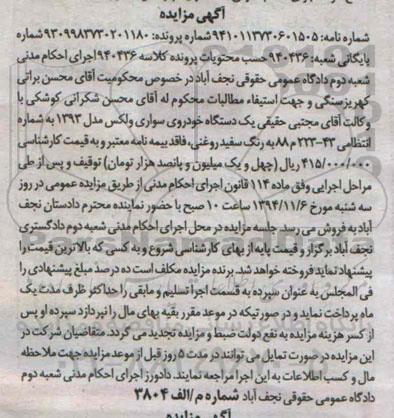 آگهی مزایده
شماره نامه: ۹۴۱۰۱۱۳۷۳۰۶۰۱۵۰۵ شماره پرونده: ۹۳۰۹۹۸۳۷۳۰۲۰۱۱۸۰ شماره
پایگانی شعبه: ۹۴۰۴۳۶ حسب محتویات پرونده کلاسه ۹۴۰۴۳۶ اجرای احکام مدنی
شعبه دوم دادگاه عمومی حقوقی نجف آباد در خصوص محکومیت آقای محسن براتی
کهریز سنگی و جهت استیفاء مطالبات محکوم له آقای محسن شکرانی کوشکی با
وکالت آقای مجتبی حقیقی یک دستگاه خودروی سواری ولکس مدل ۱۳۹۳ به شماره
انتظامی ۴۳-۲۲۳ م ۸۸ به رنگ سفید روغنی، فاقد بیمه نامه معتبر و به قیمت کارشناسی
۴۱۵/۰۰۰/۰۰۰ ریال (چهل و یک میلیون و پانصد هزار تومان) توقیف و پس از طی
مراحل اجرایی وفق ماده ۱۱۴ قانون اجرای احکام مدنی از طریق مزایده عمومی در روز
سه شنبه مورخ ۱۳۹۴/۱۱/۶ ساعت ۱۰ صبح با حضور نماینده محترم دادستان نجف
آباد به فروش می رسد. جلسه مزایده در محل اجرای احکام مدنی شعبه دوم دادگستری
نجف آباد برگزار و قیمت پایه از بهای کارشناسی شروع و به کسی که بالاترین قیمت را
پیشنهاد نماید فروخته خواهد شد. برنده مزایده مکلف است ده درصد مبلغ پیشنهادی را
فی المجلس به عنوان سپرده به قسمت اجرا تسلیم و مابقی را حداکثر ظرف مدت یک
ماه پرداخت نماید و در صورتیکه در موعد مقرر بقیه بهای مال را نپردازد سپرده او پس
از کسر هزینه مزایده به نفع دولت ضبط و مزایده تجدید می گردد. متقاضیان شرکت در
این مزایده در صورت تمایل می توانند در مدت ۵ روز قبل از موعد مزایده جهت ملاحظه
مال و کسب اطلاعات به این اجرا مراجعه نمایند. دادورز اجرای احکام مدنی شعبه دوم
دادگاه عمومی حقوقی نجف آباد شماره م/الف ۳۸۰۴
آگهی مزایده